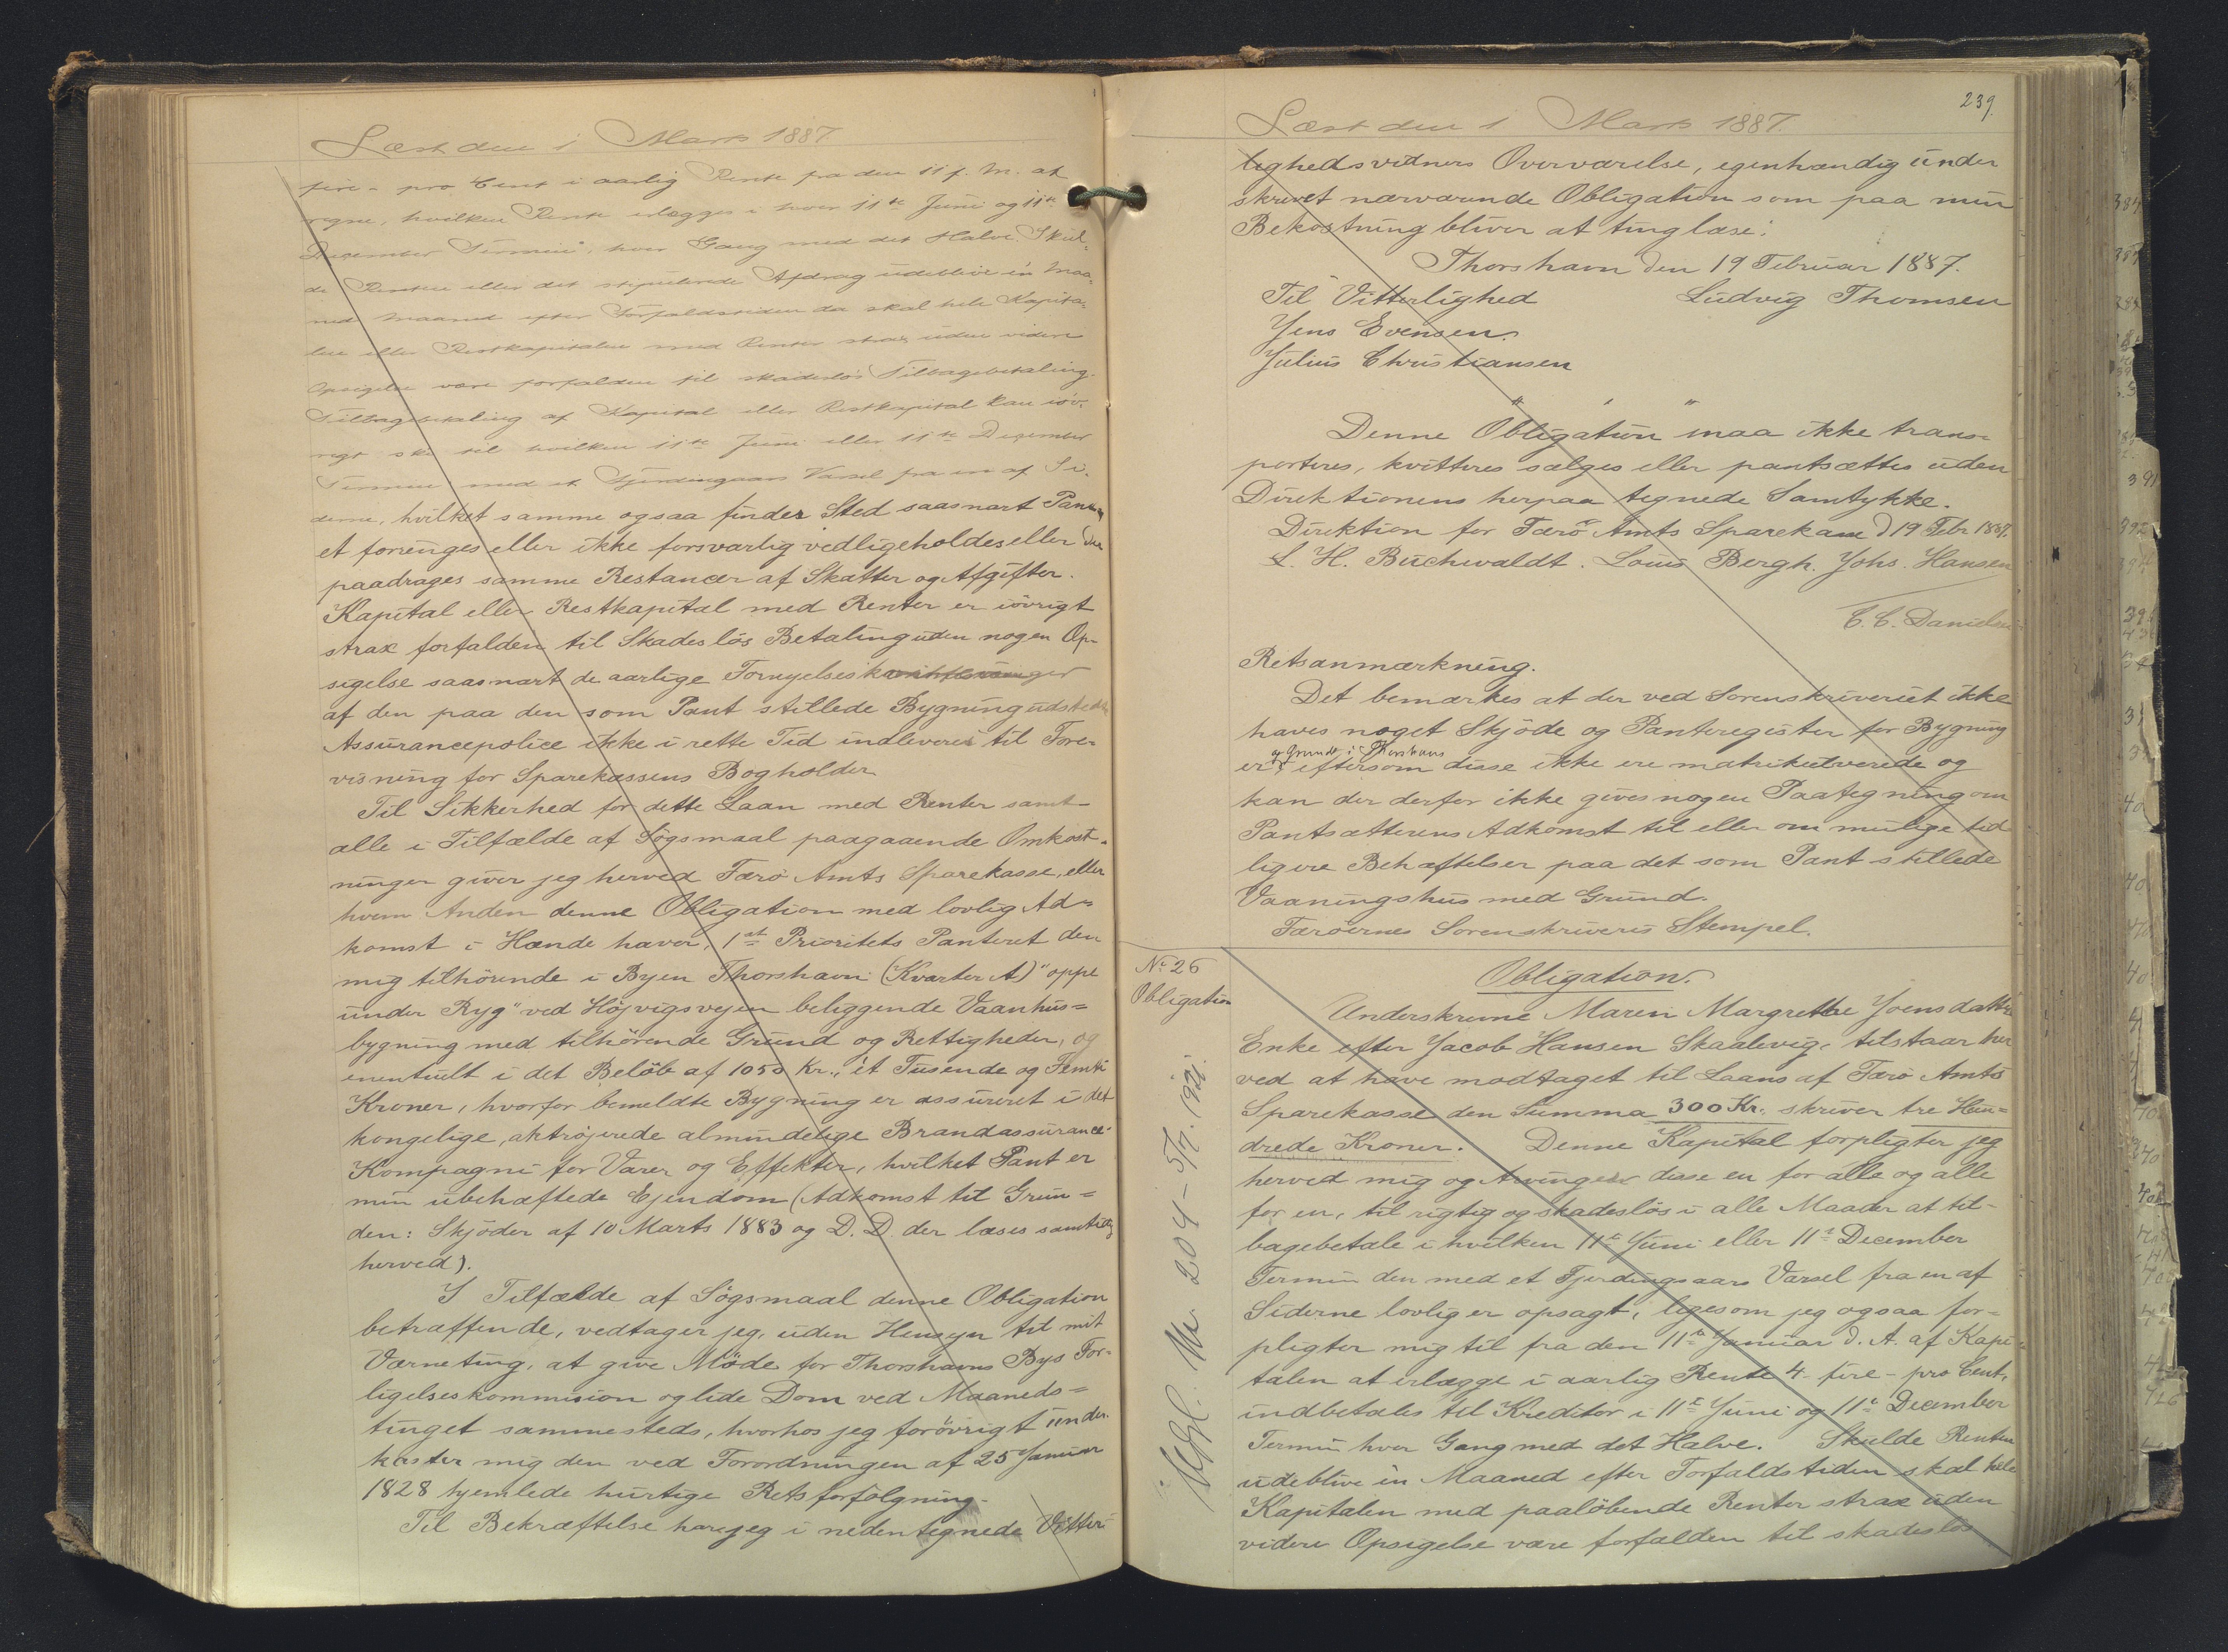 Læst den 1 Marts 1887
fire - pro Cent i aarlig Rente fra den 11 f. M. at
regne, hvilken Rente erlægges i hver 11te Juni og 11te
Dezember Termin, hver Gang med det Halve. Skul-
de Renten eller det stipulerede Afdrag udeblive én Maa-
ned Maaned efter Forfaldstiden da skal hele Kapita-
len eller Restkapitalen med Renter strax uden videre
Opsigelse være forfalden til skadeslös Tilbagebetaling.
Tilbagebetaling af Kapital eller Restkapital kan iöv-
rigt ske til hvilken 11te Juni eller 11te Dezember
Termin med et Fjerdingaars Varsel fra en af Si-
derne, hvilket samme ogsaa finder Sted saasnart Pant
et forringes eller ikke forsvarlig vedligeholdes eller der
paadrages samme Restancer af Skatter og Afgifter.
Kapital eller Restkapital med Renter er iövrigt
strax forfalden til Skadeslös Betaling uden nogen Op-
sigelse saasnart de aarlige Fornyelseskvitteringer
af den paa den som Pant stillede Bygning udstedte
Assurancepolice ikke i rette Tid indleveres til Fore-
visning for Sparekassens Bogholder
Til Sikkerhed for dette Laan med Renter samt
alle i Tilfælde af Sögsmaal paagaaende Omkost-
ninger giver jeg herved Færö Amts Sparekasse, eller
hvem Anden denne Obligation med lovlig Ad-
komst i Hænde haver, 1st Prioritets Panteret den
mig tilhörende i Byen Thorshavn (Kvarter A) "oppe
under Ryg" ved Höjvigsvejen beliggende Vaanhus=
bygning med tilhörende Grund og Rettigheder, og
enentuelt i det Belöb af 1050 Kr., ét Tusende og Femti
Kroner, hvorfor bemeldte Bygning er assureret i det
kongelige, oktrojerede almindelige Brandassurance-
Kompagni for Varer og Effekter, hvilket Pant er
min ubehæftede Ejendom (Adkomst til Grun=
den: Skjöder af 10 Marts 1883 og D. D. der læses samtidig
herved).
I Tilfælde af Sögsmaal denne Obligation
betræffende, vedtager jeg, uden Hensyn til mit
Værneting, at give Möde for Thorshavns Bys For-
ligelseskommision og lide Dom ved Maaneds=
tinget sammesteds, hvorhos jeg forövrigt under-
kaster mig den ved Forordningen af 25 Januar
1828 hjemlede hurtige Retsforfölgning.
Til Bekræftelse har jeg i nedentegnede Vitter-
239.
Læst den 1 Marts 1887.
lighedsvidners Overværelse, egenhændig under
skrevet nærværende Obligation som paa min
Bekostning bliver at tinglæse.
Thorshavn den 19 Februar 1887.
Til Vitterlighed Ludvig Thomsen
Jens Evensen.
Julius Christiansen
" " "
Denne Obligation maa ikke trans=
porteres, kvitteres sælges eller pantsættes uden
Direktionens herpaa tegnede Samtykke.
Direktion for Færö Amts Sparekasse d 19 Febr 1887.
L. H. Buchwaldt. Louis Bergh. Johs. Hansen
C. C. Danielsen
Retsanmærkning.
Det bemærkes at der ved Sorenskriveriet ikke
haves noget Skjöde og Panteregister for Bygning
og Grunde i Thorshavn
er, eftersom disse ikke ere matrikulerede og
kan der derfor ikke gives nogen Paategning om
Pantsætterens Adkomst til eller om mulige tid
ligere Behæftelser paa det som Pant stillede
Vaaningshus med Grund.
Færöernes Sorenskriveris Stempel.
No 26
Obligation
Obligation.
Underskrevne Maren Margrethe Joensdatter
Enke efter Jacob Hansen Skaalevig, tilstaar her
ved at have modtaget til Laans af Færö Amts
Sparekasse den Summa 300 Kr., skriver tre Hun=
drede Kroner. Denne Kapital forpligter jeg
herved mig og Arvinger disse en for alle og alle
for en, til rigtig og skadeslös i alle Maader at til-
bagebetale i hvilken 11te Juni eller 11te December
Termin den med et Fjerdingsaars Varsel fra en af
Siderne lovlig er opsagt, ligesom jeg ogsaa for=
pligter mig til fra den 11te Januar d. A. af Kapi-
talen at erlægge i aarlig Rente 4 - fire - pro Cent,
indbetales til Kreditor i 11te Juni og 11te December
Termin hver Gang med det Halve. Skulde Renten
udeblive én Maaned efter Forfaldstiden skal hele
Kapitalen med paalöbende Renter strax uden
videre Opsigelse være forfalden til skadeslös
204 - 5/7. 1921.